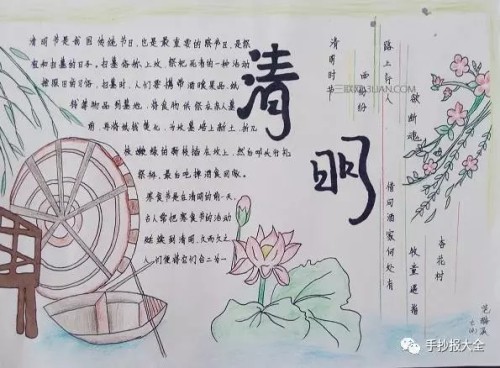 清明节是我国传统节日,也是最重要的祭节日,是祭
祖和扫墓的日子。扫墓俗称上坟,祭祀死者的一种活动
扫墓时,人们要携带酒食果品,纸
钱等物品到墓地,将食物供祭在亲人墓
前,再将纸钱焚化,为坟墓培上新土,折几
枝嫩绿的新枝插在坟上,然后叩头行礼
祭拜,最后吃掉酒食回家。
寒食节是在清明的前一天,
古人常把寒食节的活动
延续到清明,久而久之,
人们便将它们合二为一
清明
清明时节
雨纷纷
路上行人
欲断魂
借问酒家何处有
牧童遥指
杏花村
手抄报大全